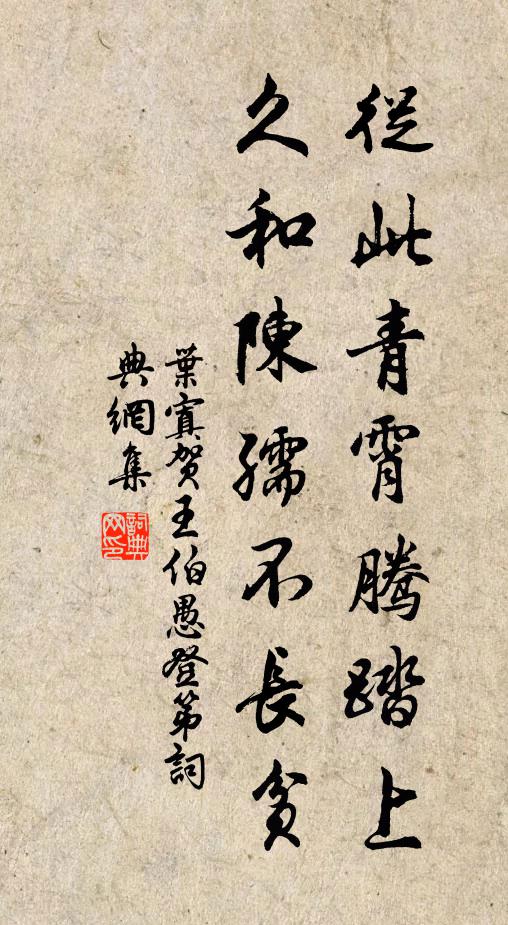 從此青霄騰踏上
久和陳孺不長貧
葉寘賀王伯愚登第詞
典網集
詞典网印